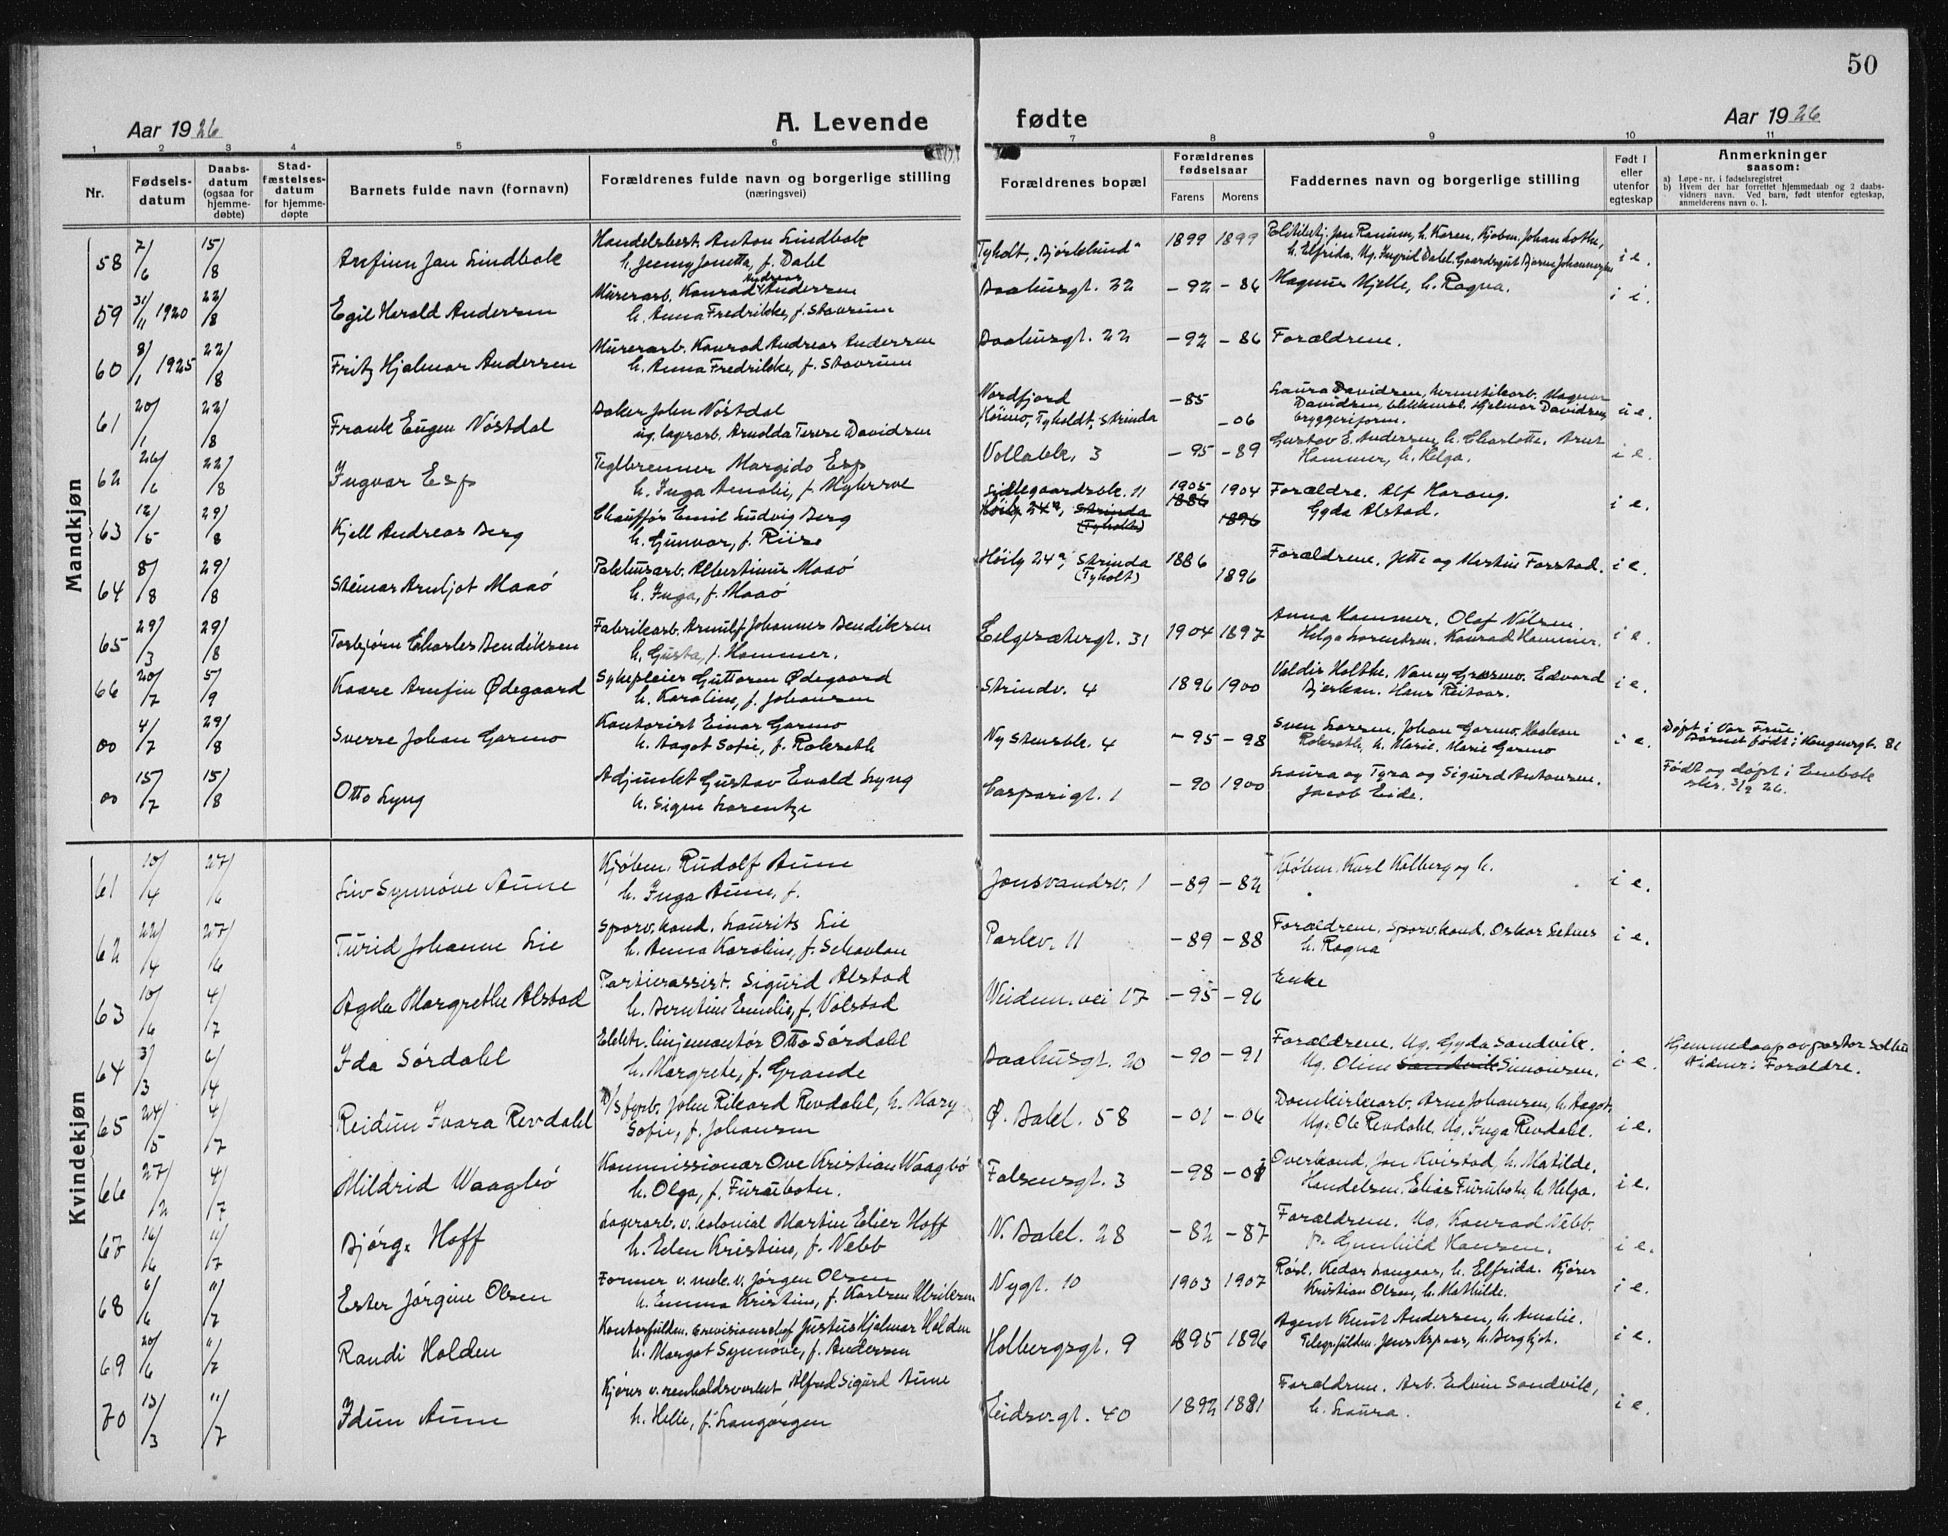 50
Aar 1926
A. Levende
fødte
Aar 1926
1 2 3 4 5 6 7 8 9 10 11
Nr.
Fødsels-
datum
Daabs-
datum
(ogsaa for
hjemme-
døbte)
Stad-
fæstelses-
datum
for hjemme-
døpte
Barnets fulde navn (fornavn)
Forældrenes fulde navn og borgerlige stilling
(næringsvei)
Forældrenes bopæl
Forældrenes
fødselsaar
Farens Morens
Faddernes navn og borgerlige stilling
Født i
eller
utenfor
egteskap
Anmerkninger
saasom:
a) Løpe-nr. i fødselsregistret
b) Hvem der har forrettet hjemmedaab og 2 daabs-
vidners navn. Ved barn, født utenfor egteskap,
anmelderens navn o. l.
Mandkjøn
58 7/6 15/8 Arnfinn Jan Lindbak
Handelsbest. Anton Lindbak
h. Jenny Jonetta, f. Dahl
Tyholt „Bjørkelund" 1899 1899
h. Elfrida. Ug. Ingrid Dahl.
i e.
59 31/11 1920 22/8 Egil Harald Andersen
Murerarb. Konrad Andreas Andersen
h. Anna Fredrikke, f. Stavrum
Baahusgt. 22 -92 -86 Magnus Hjelle, h. Ragna. i i.
60 8/1 1925 22/8 Fritz Hjalmar Andersen
Murerarb. Konrad Andreas Andersen
h. Anna Fredrikke, f. Stavrum
Baahusgt. 22 -92 -86 Forældrene.
61 20/1 22/8 Frank Eugen Nöstdal
Baker John Nöstdal
ug. lagerarb. Arnolda Terese Davidsen
Nordfjord -85
Höimo, Tyholdt, Strinda -06
Laura Davidsen, hermetikarb. Magnus
Davidsen, blikkensl. Hjalmar Davidsen
bryggeriform.
u e.
62 26/6 22/8 Ingvar Esp
Teglbrenner Margido Esp
h. Inga Amalie, f. Myhrsve
Vollabk. 3 -95 -89
Gustav E. Andersen h. Charlotte. Arnt
Hammer, h. Helga.
i e.
63 12/5 29/8 Kjell Andreas Berg
Chauffør Emil Ludvig Berg
h. Gunvor, f. Riise
11 1905 1904
Höilg 24a, Strinda 1886
(Tyholt) 1896
Forældre. Alf Harang.
Gyda Alstad.
i e.
64 8/8 29/8 Steinar Arnljot Maaö
Pakhusarb. Albertinus Maaö
h. Inga, f. Maaö
Höilg 24a, Strinda 1886
(Tyholt) 1896
Forældrene. Jette og Martin Forstad. i e.
65 29/3 29/8 Torbjørn Charles Bendiksen
Fabrikarb. Arnulf Johannes Bendiksen
h. Gusta, f. Hammer.
Eilgesætergt. 31 1904 1897
Anna Hammer. Olaf Nilsen.
Helga Lorentzen. Konrad Hammer.
i e.
66 20/7 5/9 Kaare Arnfin Ødegaard
Sykepleier Guttorm Ødegaard
h. Karoline, f. Johansen
Strindv. 4 1896 1900
Valdis Holthe. Nancy Græsmo. Edvard
Bjerkan. Hans Reitaas.
i e.
00 4/7 29/8 Sverre Johan Garmo
Kontorist Einar Garmo
h. Aagot Sofie, f. Rokseth
Ny Stensbk. 4 -95 -98
Sven Larsen, Johan Garmo, Haakon
Rokseth, h. Marie. Marie Garmo
i e.
Døpt i Vor Frue.
Barnet født i Kongensgt. 81
00 15/7 15/8 Otto Lyng
Adjunkt Gustav Evald Lyng
h. Signe Lorentze
Casparigt. 1 -90 1900
Laura og Tyra og Sigurd Antonsen.
Jacob Eide.
Født og døpt i Enebak
skr. 3/9 26.
Kvindekjøn
61 10/4 27/6 Liv Synnøve Aune
Kjøbm. Rudolf Aune
h. Inga Aune, f.
Jonsvandsv. 1 -89 -82 Kjøbm. Karl Kolberg og h. i e.
62 22/4 27/6 Turid Johanne Lie
Sporv.kond. Laurits Lie
h. Anna Karoline, f. Schavlan
Parkv. 11 -89 -88
Forældrene. Sporv.kond. Oskar Setnes
h. Ragna
i e.
63 10/6 4/7 Agda Margrethe Alstad
Portierassist. Sigurd Alstad
h. Berntine Emilie, f. Volstad
Weidem. vei 17 -95 -96 Enke
64 3/3 6/4 Ida Sördahl
Elektr. linjemontør Otto Sördahl
h. Margrete, f. Grande
Baahusgt. 20 -90 -91
Forældrene. Ug. Gyda Sandvik.
Ug. Oline Sandvik Simonsen.
i e.
Hjemmedaap av pastor
Vidner: Forældre.
65 24/5 4/7 Reidun Ivara Revdahl
D/S fyrb. John Rikard Revdahl, h. Mary
Sofie, f. Johansen
Ø. Bakl. 58 -01 -06
Domkirkearb. Arne Johansen, h. Aagot.
Ug. Ole Revdahl. Ug. Inga Revdahl.
i e.
66 27/12 4/7 Mildrid Waagbö
Kommissionær Ove Kristian Waagbö
h. Olga, f. Furubotn.
Falsensgt. 3 -98
Overkond. Jon Kvistad, h. Matilde.
Handelsm. Elias Furubotn, h. Helga.
i e.
67 16/6 11/7 Bjørg Hoff
Lagerarb. v. kolonial Martin Edier Hoff
h. Eden Kristine, f. Nebb
N. Bakl. 28 -82 -87
Forældrene. Ug. Konrad Nebb.
Fr. Gunhild Hansen.
i e.
68 6/6 11/7 Ester Jørgine Olsen
Former v. mek. v. Jørgen Olsen
h. Emma Kristine, f. Karlsen Ulriksen
Nygt. 10 1903 1907
Rørl. Kedar Langaas, h. Elfrida. Kjører
Kristian Olsen, h. Mathilde.
i e.
69 20/6 11/7 Randi Holden
Kontorfuldm. Justus Hjalmar Holden
h. Margot Synnöve, f. Andersen
Holbergsgt. 9 1895 1896
Agent Knut Andersen, h. Amalie.
Telegr.fuldm. Jens Aspaas, h. Bergljot.
i e.
70 13/3 11/7 Idun Aune
Kjører v. renholdsverket Alfred Sigurd Aune
h. Helle, f. Langørgen
Eidsvgt. 40 1892 1881
Forældrene. Arb. Edvin Sandvik,
h. Laura.
i e.